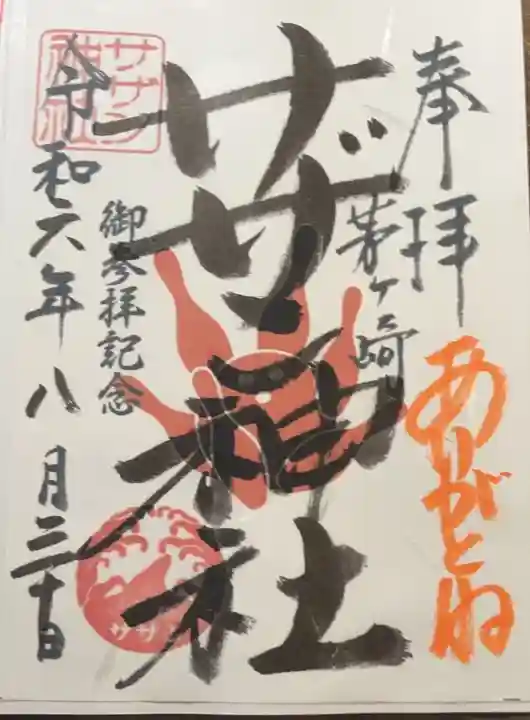 奉拝
茅ヶ崎
ありがとね
サザン神社
御参拝記念
令和六年八月三十日
サザン
神社
サザン